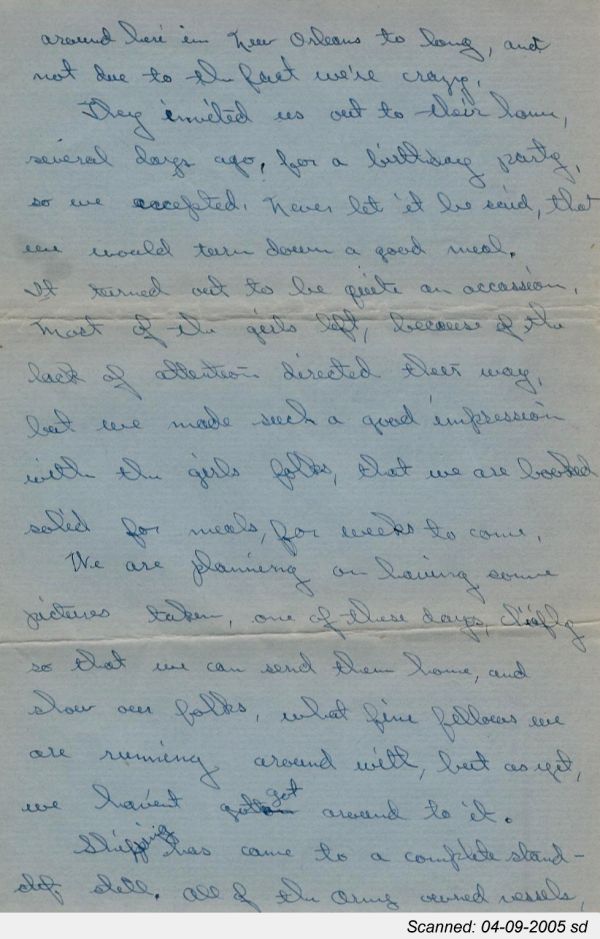 around here in New Orleans to long, and
not due to the fact we're crazy.
They invited us out to their home,
several days ago, for a birthday party,
so we accepted. Never let it be said, that
we would turn down a good meal.
It turned out to be quite an occassion.
Most of the girls left, because of the
lack of attention directed their way,
but we made such a good impression
with the girls folks, that we are booked
solid for meals, for weeks to come.
We are planning on having some
pictures taken, one of these days, chiefly
so that we can send them home, and
show our folks, what fine fellows we
are running around with, but as yet,
we havent got around to it.
Shipping has came to a complete stand-
still. All of the Army owned vessels,
Scanned: 04-09-2005 sd